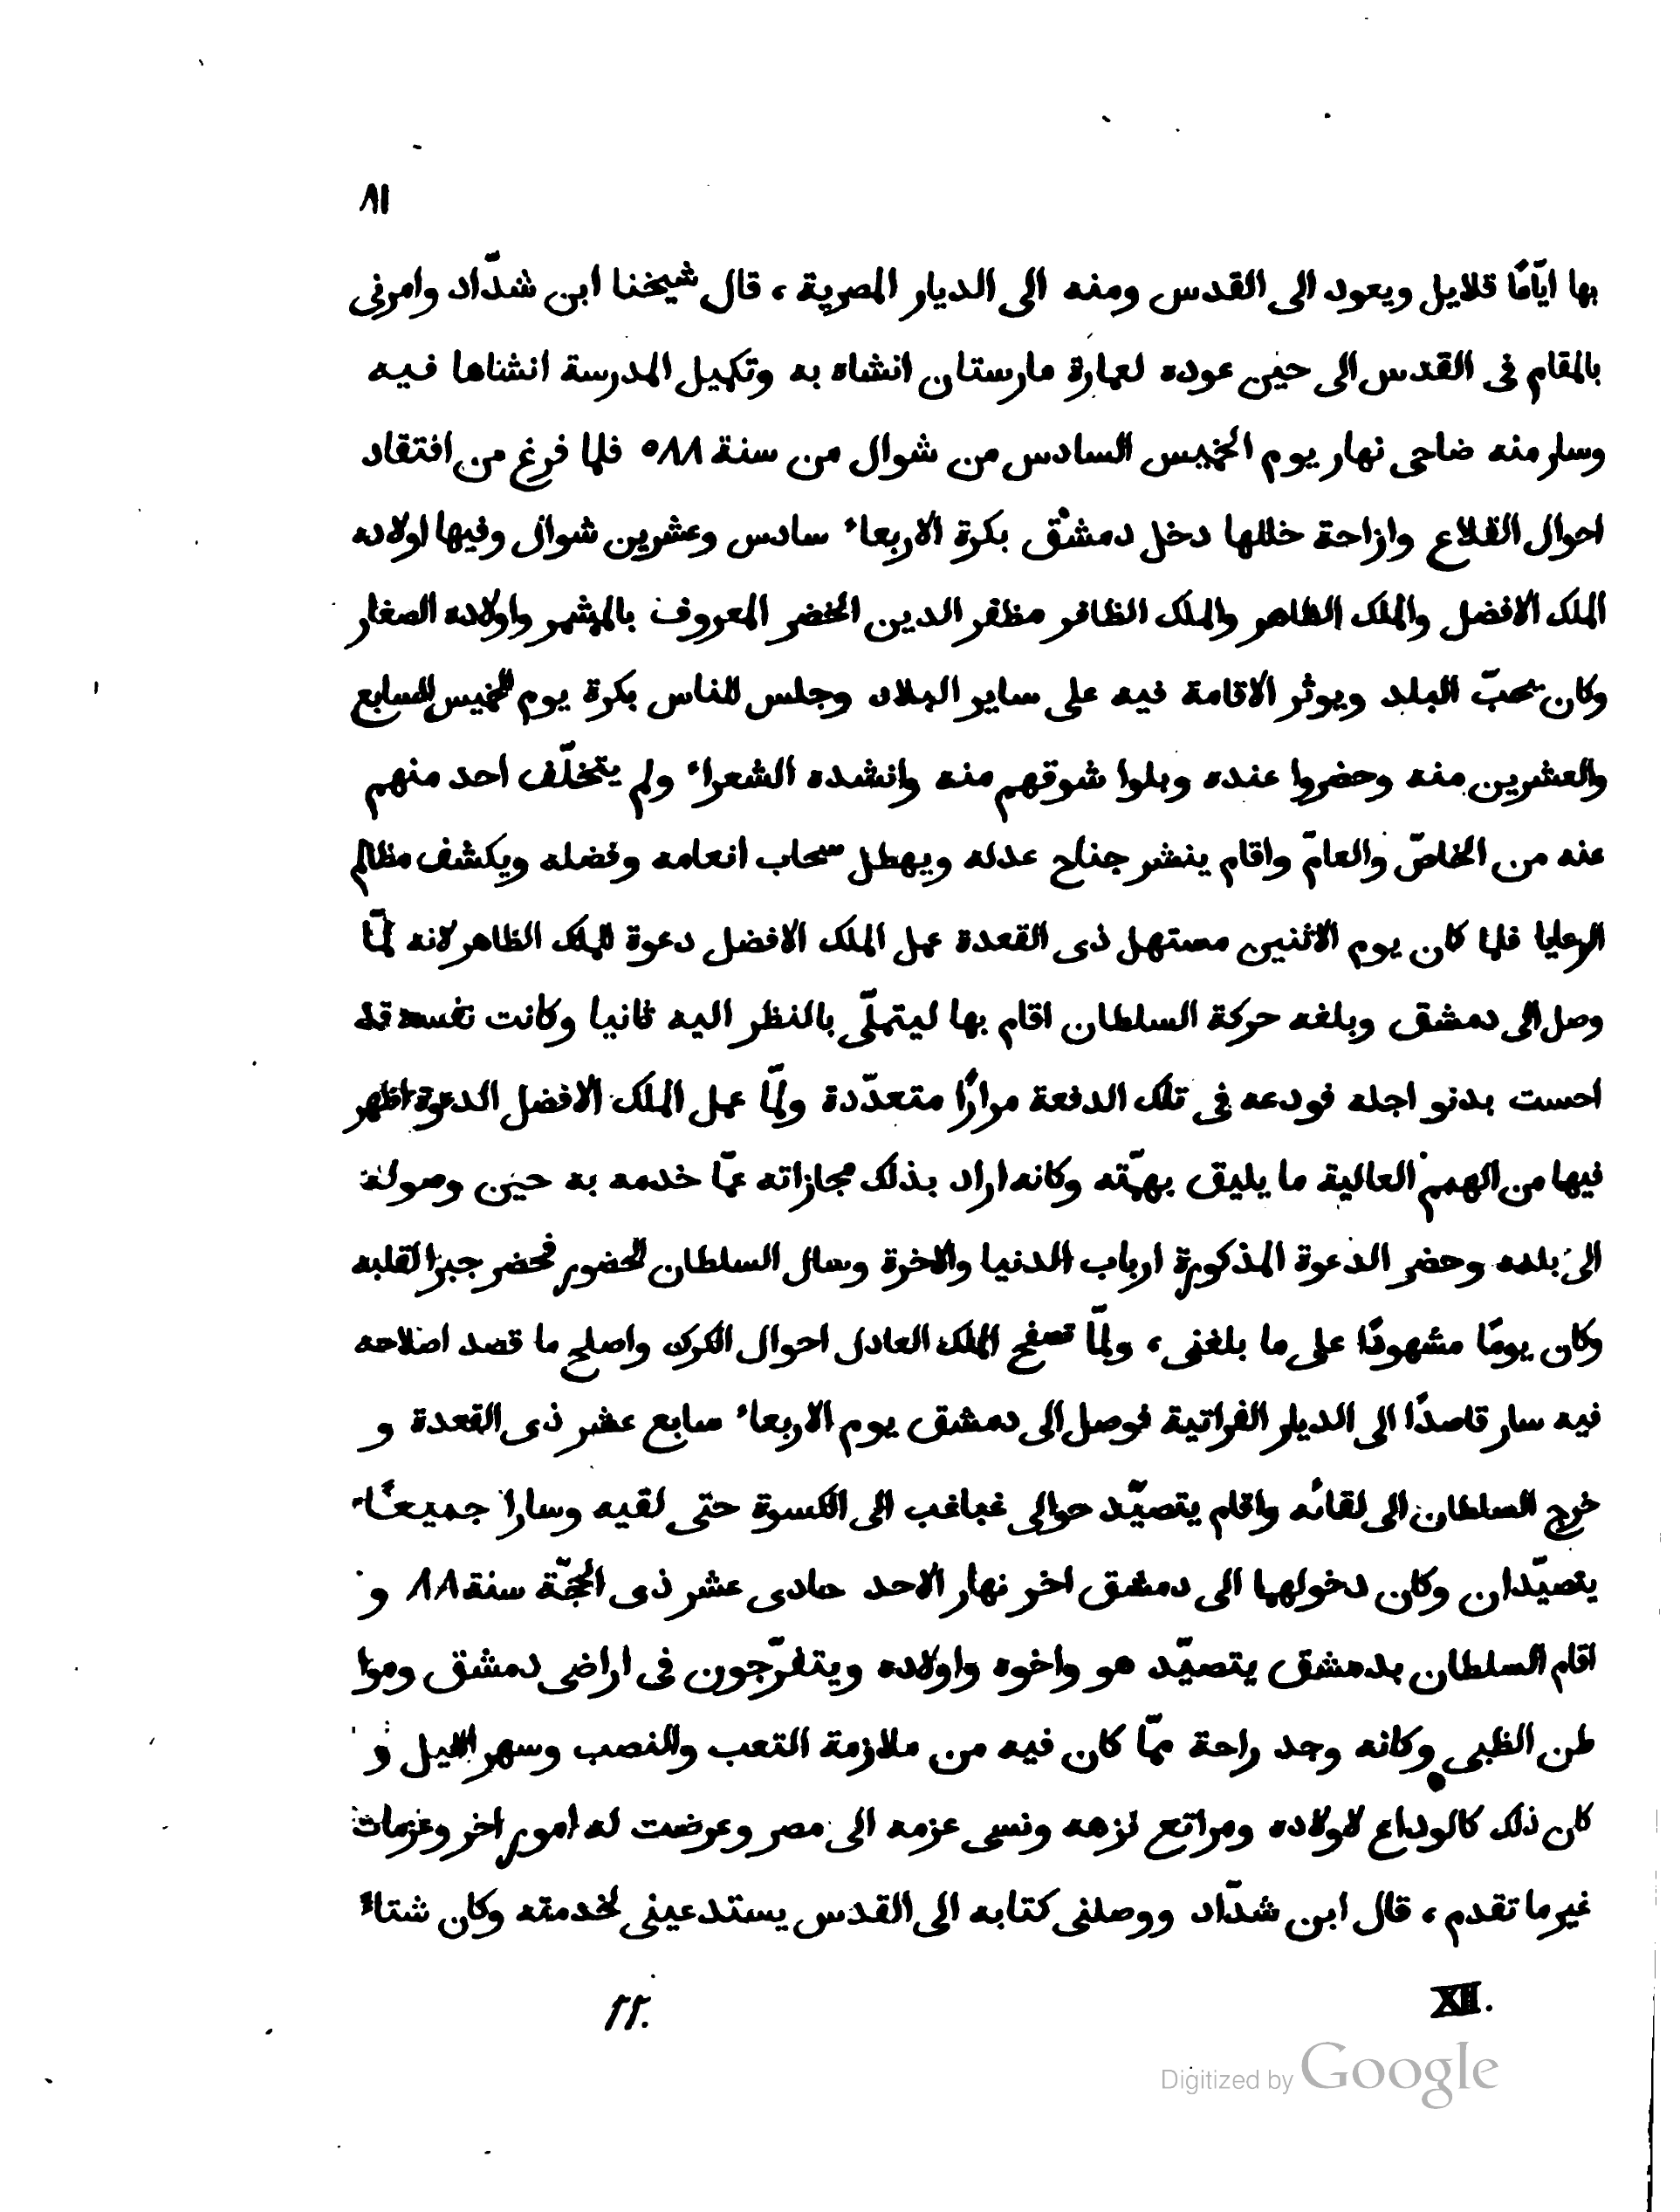 ٨١
بها ايّامًا قلايل ويعود الى القدس ومنه الى الديار المصرية ، قال شيخنا ابن شدّاد وامرنى
بالمقام فى القدس الى حين عوده لعمارة مارستان انشاه به وتكميل المدرسة انشناها فيه
وسار منه ضاحى نهار يوم الخميس السادس من شوال من سنة ٥٨٨ فلما فرغ من افتقاد
احوال القلاع وازاحة خللها دخل دمشق بكرة الاربعاء سادس وعشرين شوال وفيها اولاده
الملك الافضل والملك الظاهر والملك الظافر مظفر الدين الخضر المعروف بالمشمر واولاده الصغار
وكان يحبّ البلد ويوثر الاقامة فيه على ساير البلاد وجلس للناس بكرة يوم الخميس السابع
والعشرين منه وحضروا عنده وبلوا شوقهم منه وانشده الشعراء ولم يتخلّف احد منهم
عنه من الخاصّ والعامّ واقام ينشر جناح عدله ويهطل سحاب انعامه وفضله ويكشف مظالم
الرعايا فلما كان يوم الاثنين مستهل ذى القعدة عمل الملك الافضل دعوة للملك الظاهر لانه لمّا
وصل الى دمشق وبلغه حركة السلطان اقام بها ليتملّى بالنظر اليه ثانيا وكانت نفسه قد
احست بدنو اجله فودعه فى تلك الدفعة مرارًا متعدّدة ولمّا عمل الملك الافضل الدعوة اظهر
فيها من الهمم العالية ما يليق بهمّته وكانه اراد بذلك مجازاته عمّا خدمه به حين وصوله
الى بلده وحضر الدعوة المذكورة ارباب الدنيا والاخرة وسال السلطان الحضور فحضر جبرا لقلبه
وكان يومًا مشهودًا على ما بلغنى ، ولمّا تصفح الملك العادل احوال الكرك واصلح ما قصد اصلاحه
فيه سار قاصدًا الى الديار الفراتية فوصل الى دمشق يوم الاربعاء سابع عشر ذى القعدة و
خرج السلطان الى لقائه واقام يتصيّد حوالى غباغب الى الكسوة حتى لقيه وسارا جميعًا
يتصيّدان وكان دخولهما الى دمشق اخر نهار الاحد حادى عشر ذى الحجّة سنة ٨٨ و
اقام السلطان بدمشق يتصيّد هو واخوه واولاده ويتفرّجون فى اراضى دمشق وموا
طن الظبى وكانه وجد راحة ممّا كان فيه من ملازمة التعب والنصب وسهر الليل و
كان ذلك كالوداع لاولاده ومراتع نزهه ونسى عزمه الى مصر وعرضت له امور اخر وعزمات
غير ما تقدم ، قال ابن شدّاد ووصلنى كتابه الى القدس يستدعينى لخدمته وكان شتاء
XII. ٢٢.
Digitized by Google